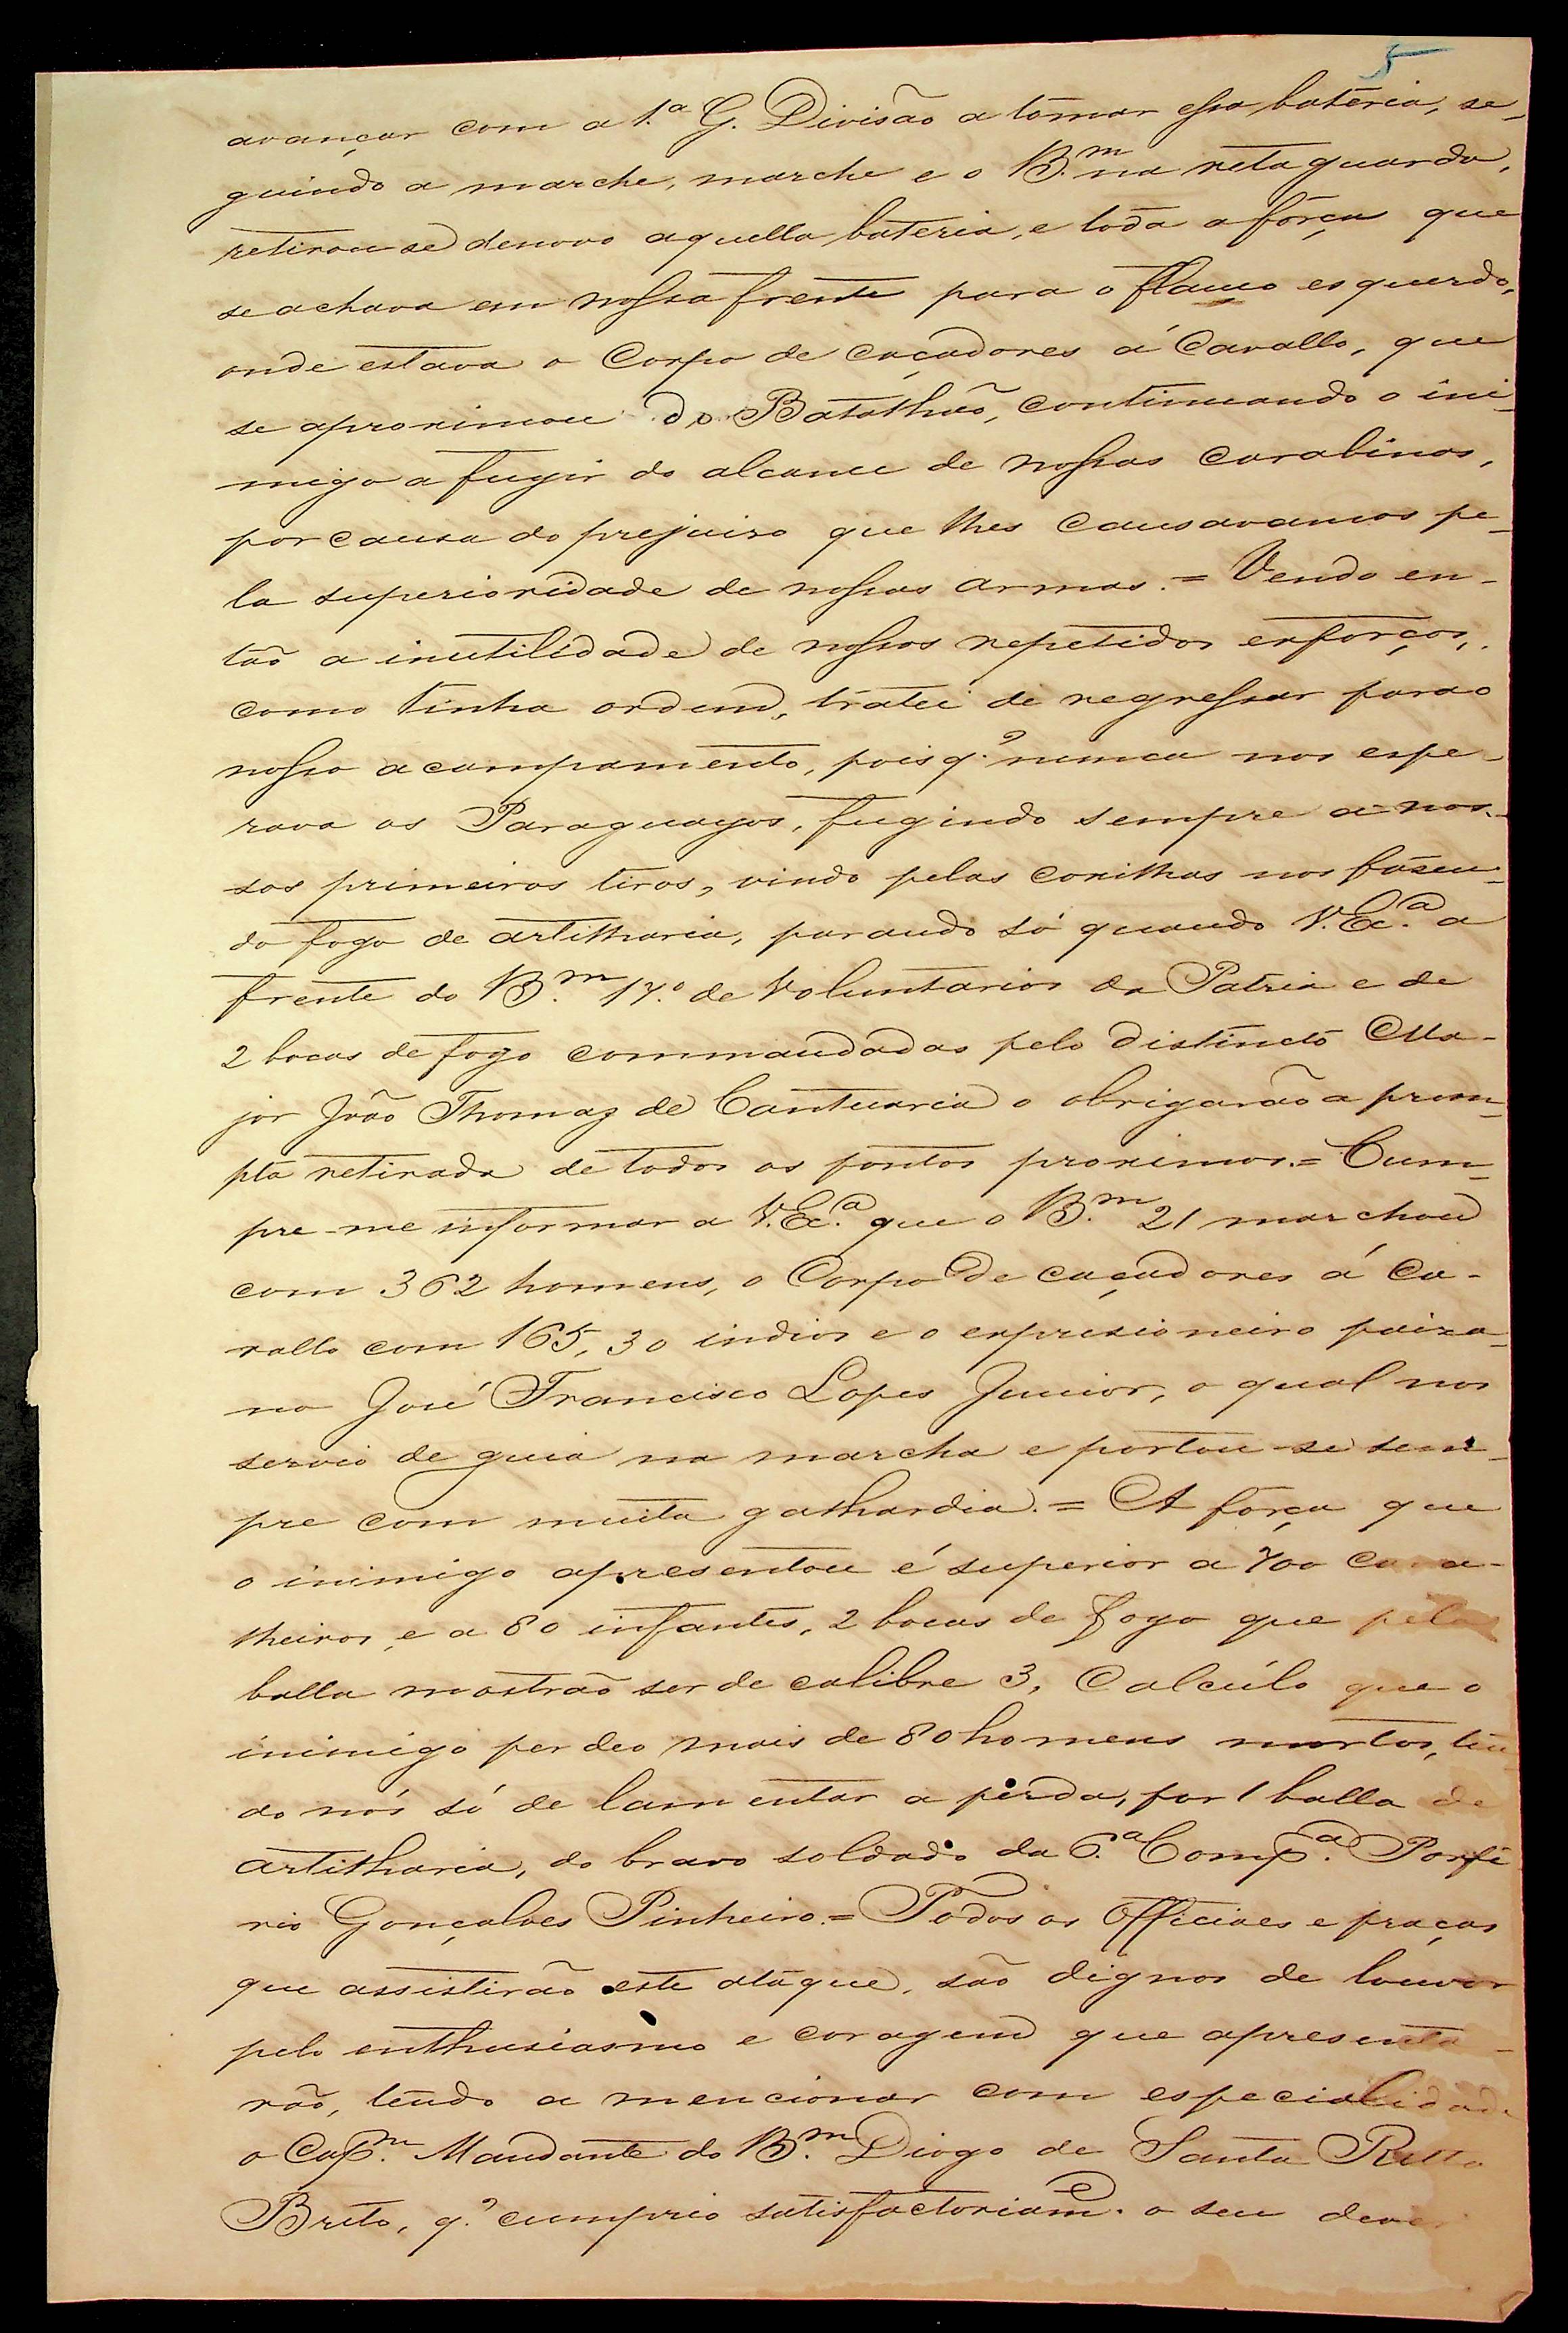 5
avançar com a 1.ª G. Divisão a tomar essa bateria, se-
guindo a marche, marche e o B.m na retaguarda,
retirou-se denovo aquella bateria, e toda a força que
se achava em nossa frente para o flanco esquerdo,
onde estava o Corpo de caçadores á Cavallo, que
se aproximou do Batalhão, continuando o ini-
migo a fugir do alcance de nossas carabinas,
por causa do prejuiso que lhes causavamos pe-
la superioridade de nossas armas. = Vendo en-
tão a inutilidade de nossos repetidos esforços,
como tinha ordem, tratei de regressar para o
nosso acampamento, pois q.e nunca nos espe-
rava os Paraguayos, fugindo sempre a nos-
sos primeiros tiros, vindo pelas coxilhas nos fasen-
do fogo de artilharia, parando só quando V. Ex.ª a
frente do B.m 17.º de Voluntarios da Patria e de
2 bocas de fogo commandadas pelo distincto Ma-
jor João Thomaz de Cantuaria o obrigarão a prom-
pta retirada de todos os pontos proximos. = Cum-
pre-me informar a V. Ex.ª que o B.m 21 marchou
com 362 homens, o Corpo de caçadores á Ca-
vallo com 165, 30 indios e o exprisioneiro paisa-
no José Francisco Lopes Junior, o qual nos
servio de guia na marcha e portou-se sem-
pre com muita galhardia. = A força que
o inimigo apresentou é superior a 700 cava-
lheiros, e a 80 infantes, 2 bocas de fogo que pela
balla mostrão ser de calibre 3. Calcúlo que o
inimigo perdeo mais de 80 homens mortos, ten
do nós só de lamentar a perda, por 1 balla de
artilharia, do bravo soldado da 6.ª Comp.ª Porfi
rio Gonçalves Pinheiro. = Todos os Officiaes e praças
que assistirão este ataque, são dignos de louvor
pelo enthusiasmo e coragem que apresenta-
rão, tendo a mencionar com especialidade
o Cap.m Mandante do B.m Diogo de Santa Ritta
Brito, q.e cumprio satisfactoriam.e o seu dever